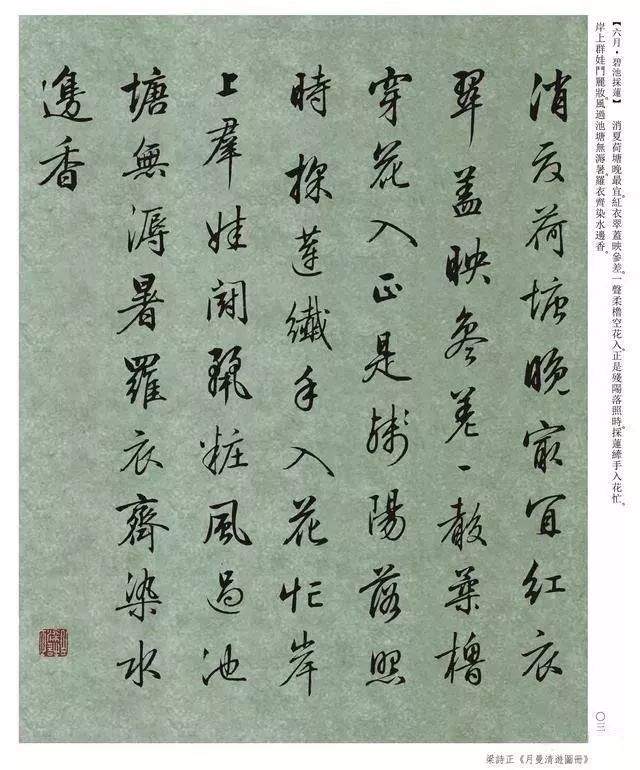 【六月·碧池採蓮】 消夏荷塘晚最宜。紅衣翠蓋映參差。一聲柔櫓空花入。正是殘陽落照時。採蓮縴手入花忙。
岸上群娃鬥麗妝。風過池塘無海暑。羅衣齊染水邊香。
消夏荷塘晚最宜紅衣
翠蓋映參差一聲柔櫓
穿花入正是殘陽落照
時採蓮纖手入花忙岸
上羣娃鬪麗粧風過池
塘無溽暑羅衣齊染水
邊香
梁詩正《月曼清遊圖冊》